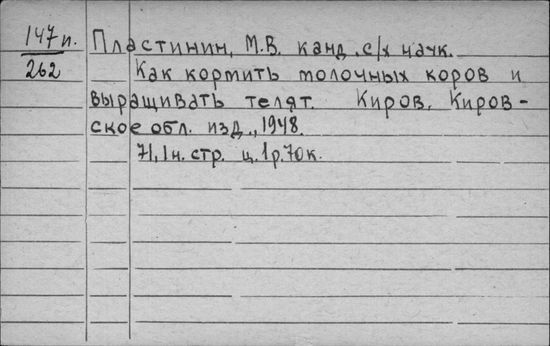 147п.
262
Пластинин, М.В. канд. с/х наук.
Как кормить молочных коров и
выращивать телят. Киров, Киров-
ское обл. изд., 1948.
71, 1 н. стр. ц. 1 р. 70 к.